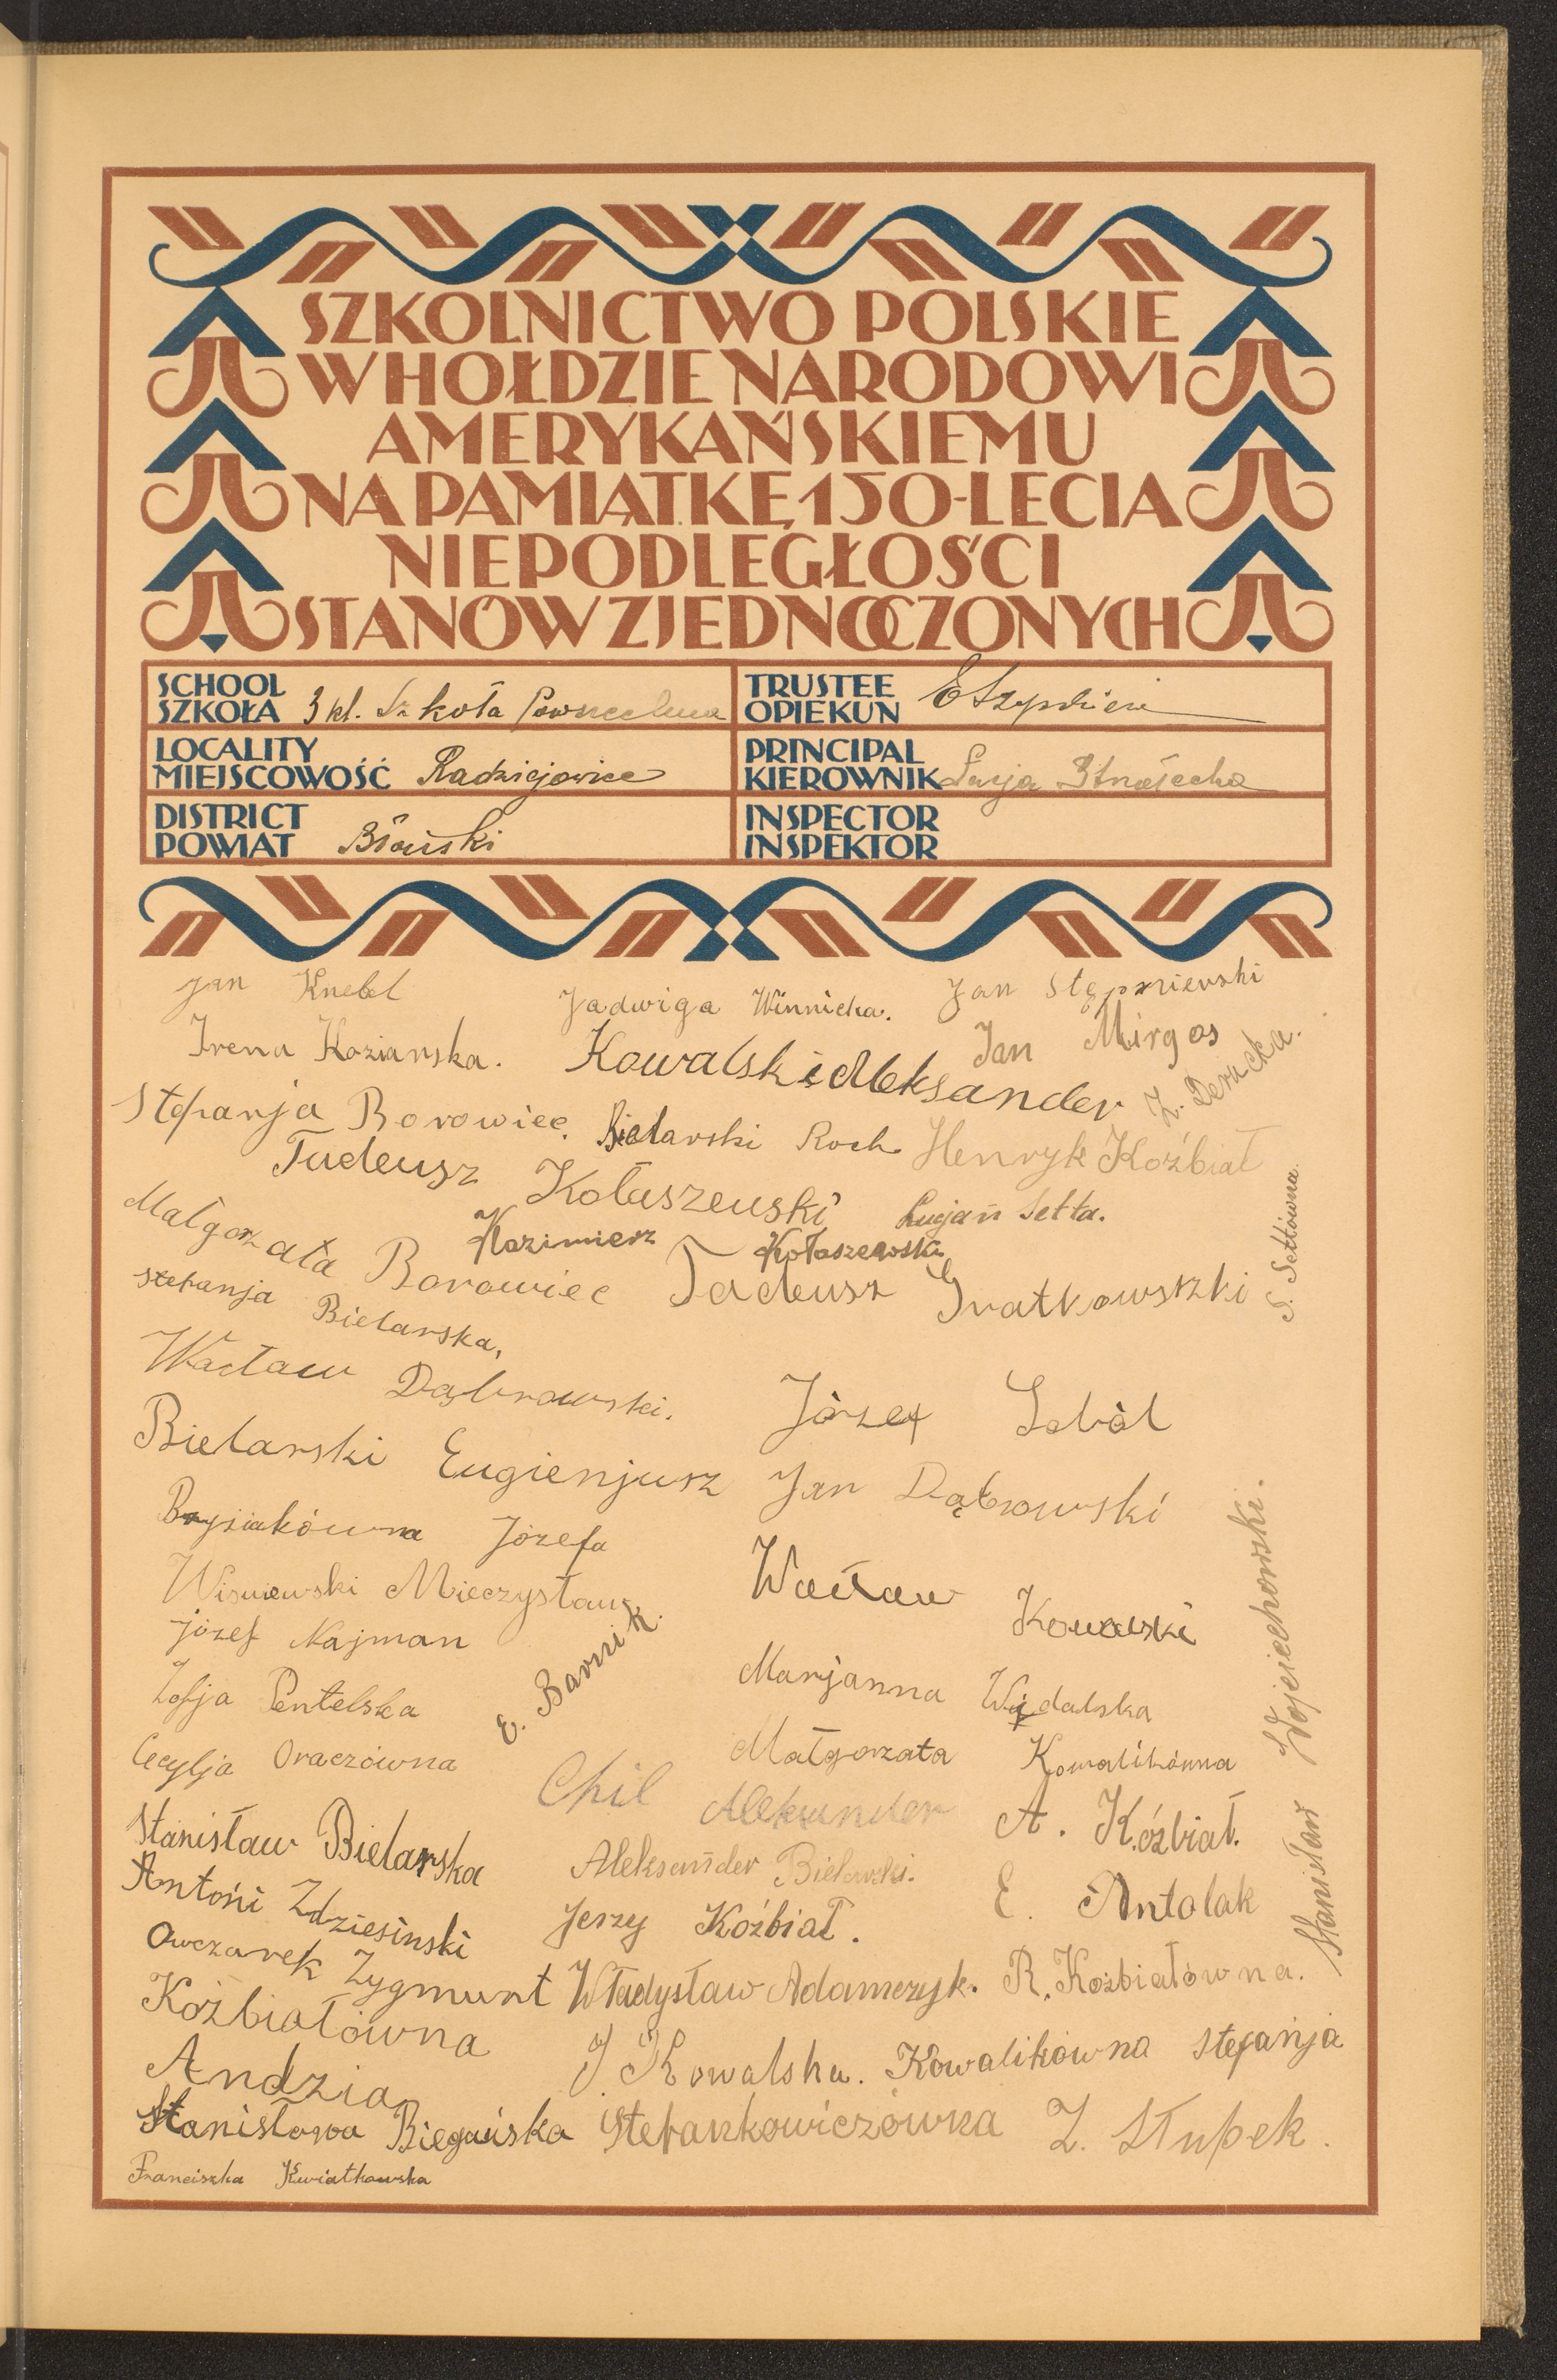 SZKOLNICTWO POLSKIE
W HOŁDZIE NARODOWI
AMERYKAŃSKIEMU
NA PAMIĄTKĘ 150-LECIA
NIEPODLEGŁOŚCI
STANÓW ZJEDNOCZONYCH
SCHOOL
SZKOŁA 3 kl. Szkoła Powszechna
TRUSTEE
OPIEKUN
LOCALITY
MIEJSCOWOŚĆ Radziejowice
PRINCIPAL
KIEROWNIK
DISTRICT
POWIAT Błoński
INSPECTOR
INSPEKTOR
Jan Knebel
Jadwiga Winnicka.
Jan Stępniewski
Irena Koziarska.
Kowalski Aleksander
Jan Mirgos
Z. Deracka.
Stefanja Borowiec.
Bielarski Roch
Henryk Koźbiał
Tadeusz Kołaszewski
Lucjan Setta.
S. Settówna.
Małgorzata Borowiec
Kazimierz Kołaszewski
Tadeusz Gratkowszki
Stefanja Bielarska,
Wacław Dąbrowski.
Józef Soból
Bielarski Eugienjusz
Jan Dąbrowski
Brysiakówna Józefa
Wacław Kowalski
Wisniewski Mieczysław
Józef Najman
E. Barnik.
Zofja Pentelska
Marjanna Widalska
Cecylja Oraczówna
Małgorzata Kowalikówna
Stanisław Wojciechowski.
Chil Aleksander
A. Koźbiał.
Stanisław Bielarska
Aleksander Bielarski.
E. Antolak
Antoni Zdziesinski
Jerzy Koźbiał.
Owczarek Zygmunt
Władysław Adamczyk.
R. Koźbiałówna.
Koźbiałówna
Andzia
J. Kowalska.
Kowalikówna Stefanja
Stanisława Biegańska
Stefankowiczówna
Z. Słupek.
Franciszka Kwiatkowska